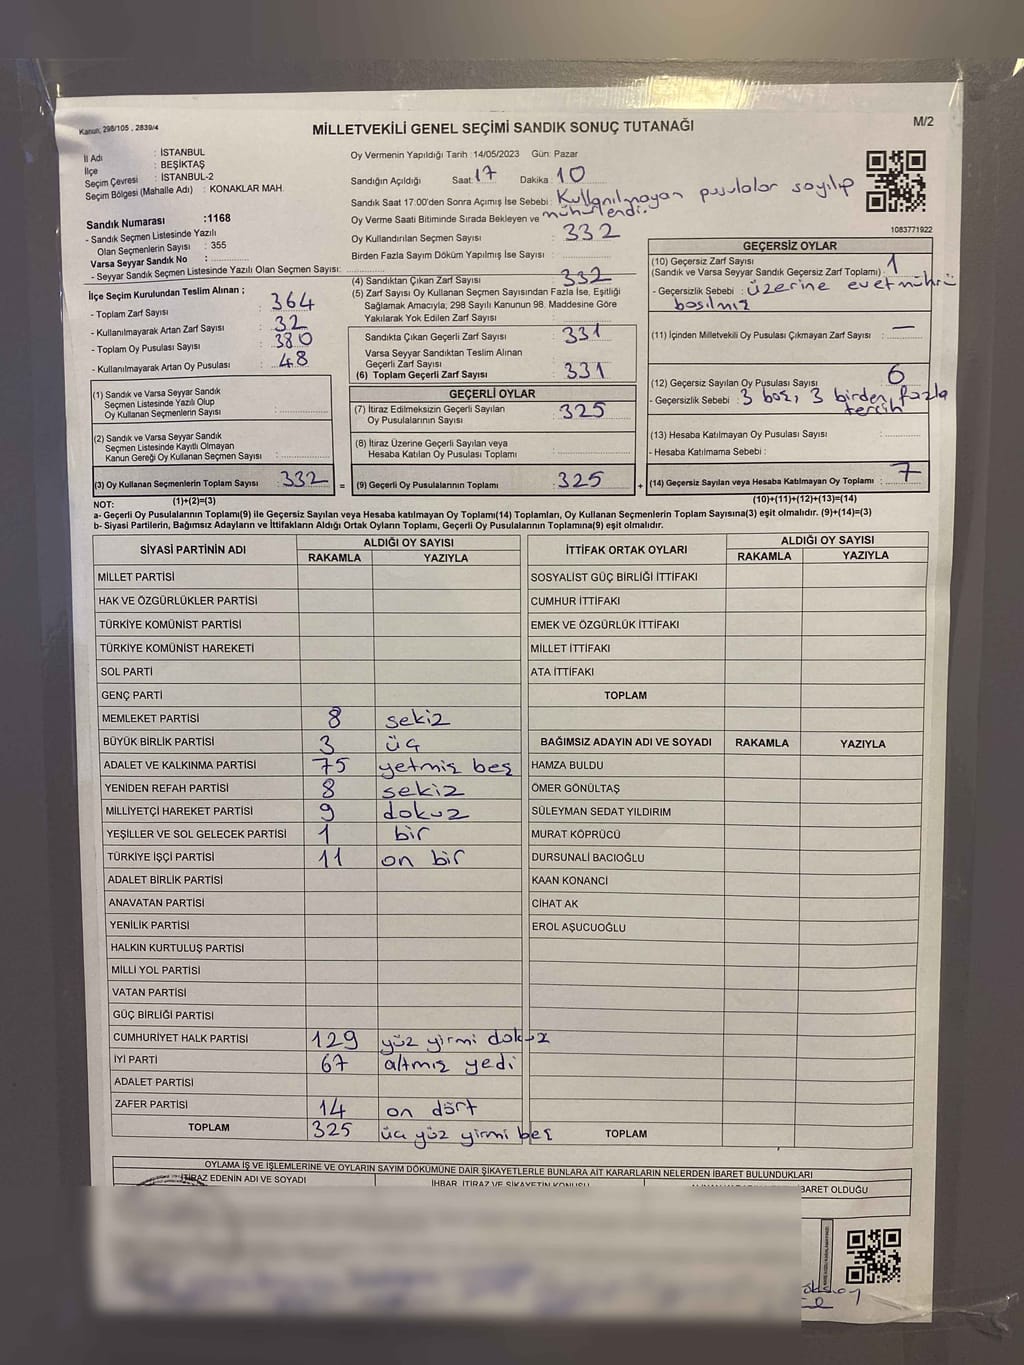 Kanun, 298/105 , 2839/4
MİLLETVEKİLİ GENEL SEÇİMİ SANDIK SONUÇ TUTANAĞI
M/2
İl Adı : İSTANBUL
İlçe : BEŞİKTAŞ
Seçim Çevresi : İSTANBUL-2
Seçim Bölgesi (Mahalle Adı) : KONAKLAR MAH.
Sandık Numarası :1168
- Sandık Seçmen Listesinde Yazılı
Olan Seçmenlerin Sayısı : 355
Varsa Seyyar Sandık No :
- Seyyar Sandık Seçmen Listesinde Yazılı Olan Seçmen Sayısı:
Oy Vermenin Yapıldığı Tarih :14/05/2023 Gün: Pazar
Sandığın Açıldığı Saat: 17 Dakika: 10
Sandık Saat 17:00'den Sonra Açımış İse Sebebi: Kullanılmayan pusulalar sayılıp
Oy Verme Saati Bitiminde Sırada Bekleyen ve mühürlendi.
Oy Kullandırılan Seçmen Sayısı : 332
Birden Fazla Sayım Döküm Yapılmış İse Sayısı :
1083771922
İlçe Seçim Kurulundan Teslim Alınan ;
- Toplam Zarf Sayısı : 364
- Kullanılmayarak Artan Zarf Sayısı : 32
- Toplam Oy Pusulası Sayısı : 380
- Kullanılmayarak Artan Oy Pusulası : 48
(1) Sandık ve Varsa Seyyar Sandık
Seçmen Listesinde Yazılı Olup
Oy Kullanan Seçmenlerin Sayısı :
(2) Sandık ve Varsa Seyyar Sandık
Seçmen Listesinde Kayıtlı Olmayan
Kanun Gereği Oy Kullanan Seçmen Sayısı :
(3) Oy Kullanan Seçmenlerin Toplam Sayısı : 332
(1)+(2)=(3)
(4) Sandıktan Çıkan Zarf Sayısı : 332
(5) Zarf Sayısı Oy Kullanan Seçmen Sayısından Fazla İse, Eşitliği
Sağlamak Amacıyla; 298 Sayılı Kanunun 98. Maddesine Göre
Yakılarak Yok Edilen Zarf Sayısı :
Sandıkta Çıkan Geçerli Zarf Sayısı : 331
Varsa Seyyar Sandıktan Teslim Alınan
Geçerli Zarf Sayısı :
(6) Toplam Geçerli Zarf Sayısı : 331
GEÇERLİ OYLAR
(7) İtiraz Edilmeksizin Geçerli Sayılan
Oy Pusulalarının Sayısı : 325
(8) İtiraz Üzerine Geçerli Sayılan veya
Hesaba Katılan Oy Pusulası Toplamı :
= (9) Geçerli Oy Pusulalarının Toplamı : 325 +
GEÇERSİZ OYLAR
(10) Geçersiz Zarf Sayısı
(Sandık ve Varsa Seyyar Sandık Geçersiz Zarf Toplamı) : 1
- Geçersizlik Sebebi : üzerine evet mührü
basılmış
(11) İçinden Milletvekili Oy Pusulası Çıkmayan Zarf Sayısı : —
(12) Geçersiz Sayılan Oy Pusulası Sayısı : 6
- Geçersizlik Sebebi : 3 boş, 3 birden fazla
tercih
(13) Hesaba Katılmayan Oy Pusulası Sayısı :
- Hesaba Katılmama Sebebi :
(14) Geçersiz Sayılan veya Hesaba Katılmayan Oy Toplamı : 7
(10)+(11)+(12)+(13)=(14)
NOT:
a- Geçerli Oy Pusulalarının Toplamı(9) ile Geçersiz Sayılan veya Hesaba katılmayan Oy Toplamı(14) Toplamları, Oy Kullanan Seçmenlerin Toplam Sayısına(3) eşit olmalıdır. (9)+(14)=(3)
b- Siyasi Partilerin, Bağımsız Adayların ve İttifakların Aldığı Ortak Oyların Toplamı, Geçerli Oy Pusulalarının Toplamına(9) eşit olmalıdır.
SİYASİ PARTİNİN ADI ALDIĞI OY SAYISI
RAKAMLA YAZIYLA
MİLLET PARTİSİ
HAK VE ÖZGÜRLÜKLER PARTİSİ
TÜRKİYE KOMÜNİST PARTİSİ
TÜRKİYE KOMÜNİST HAREKETİ
SOL PARTİ
GENÇ PARTİ
MEMLEKET PARTİSİ 8 sekiz
BÜYÜK BİRLİK PARTİSİ 3 üç
ADALET VE KALKINMA PARTİSİ 75 yetmiş beş
YENİDEN REFAH PARTİSİ 8 sekiz
MİLLİYETÇİ HAREKET PARTİSİ 9 dokuz
YEŞİLLER VE SOL GELECEK PARTİSİ 1 bir
TÜRKİYE İŞÇİ PARTİSİ 11 on bir
ADALET BİRLİK PARTİSİ
ANAVATAN PARTİSİ
YENİLİK PARTİSİ
HALKIN KURTULUŞ PARTİSİ
MİLLİ YOL PARTİSİ
VATAN PARTİSİ
GÜÇ BİRLİĞİ PARTİSİ
CUMHURİYET HALK PARTİSİ 129 yüz yirmi dokuz
İYİ PARTİ 67 altmış yedi
ADALET PARTİSİ
ZAFER PARTİSİ 14 on dört
TOPLAM 325 üç yüz yirmi beş
İTTİFAK ORTAK OYLARI ALDIĞI OY SAYISI
RAKAMLA YAZIYLA
SOSYALİST GÜÇ BİRLİĞİ İTTİFAKI
CUMHUR İTTİFAKI
EMEK VE ÖZGÜRLÜK İTTİFAKI
MİLLET İTTİFAKI
ATA İTTİFAKI
TOPLAM
BAĞIMSIZ ADAYIN ADI VE SOYADI RAKAMLA YAZIYLA
HAMZA BULDU
ÖMER GÖNÜLTAŞ
SÜLEYMAN SEDAT YILDIRIM
MURAT KÖPRÜCÜ
DURSUNALİ BACIOĞLU
KAAN KONANCİ
CİHAT AK
EROL AŞUCUOĞLU
TOPLAM
OYLAMA İŞ VE İŞLEMLERİNE VE OYLARIN SAYIM DÖKÜMÜNE DAİR ŞİKAYETLERLE BUNLARA AİT KARARLARIN NELERDEN İBARET BULUNDUKLARI
İTİRAZ EDENİN ADI VE SOYADI
İHBAR, İTİRAZ VE ŞİKAYETİN KONUSU
İBARET OLDUĞU